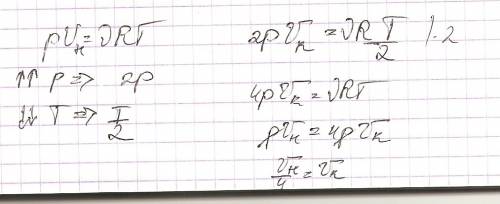 pV_н = νRT
↑↑ p => 2p
↓↓ T => T/2
2pV_к = νR T/2 | · 2
4pV_к = νRT
pV_н = 4pV_к
V_н/4 = V_к